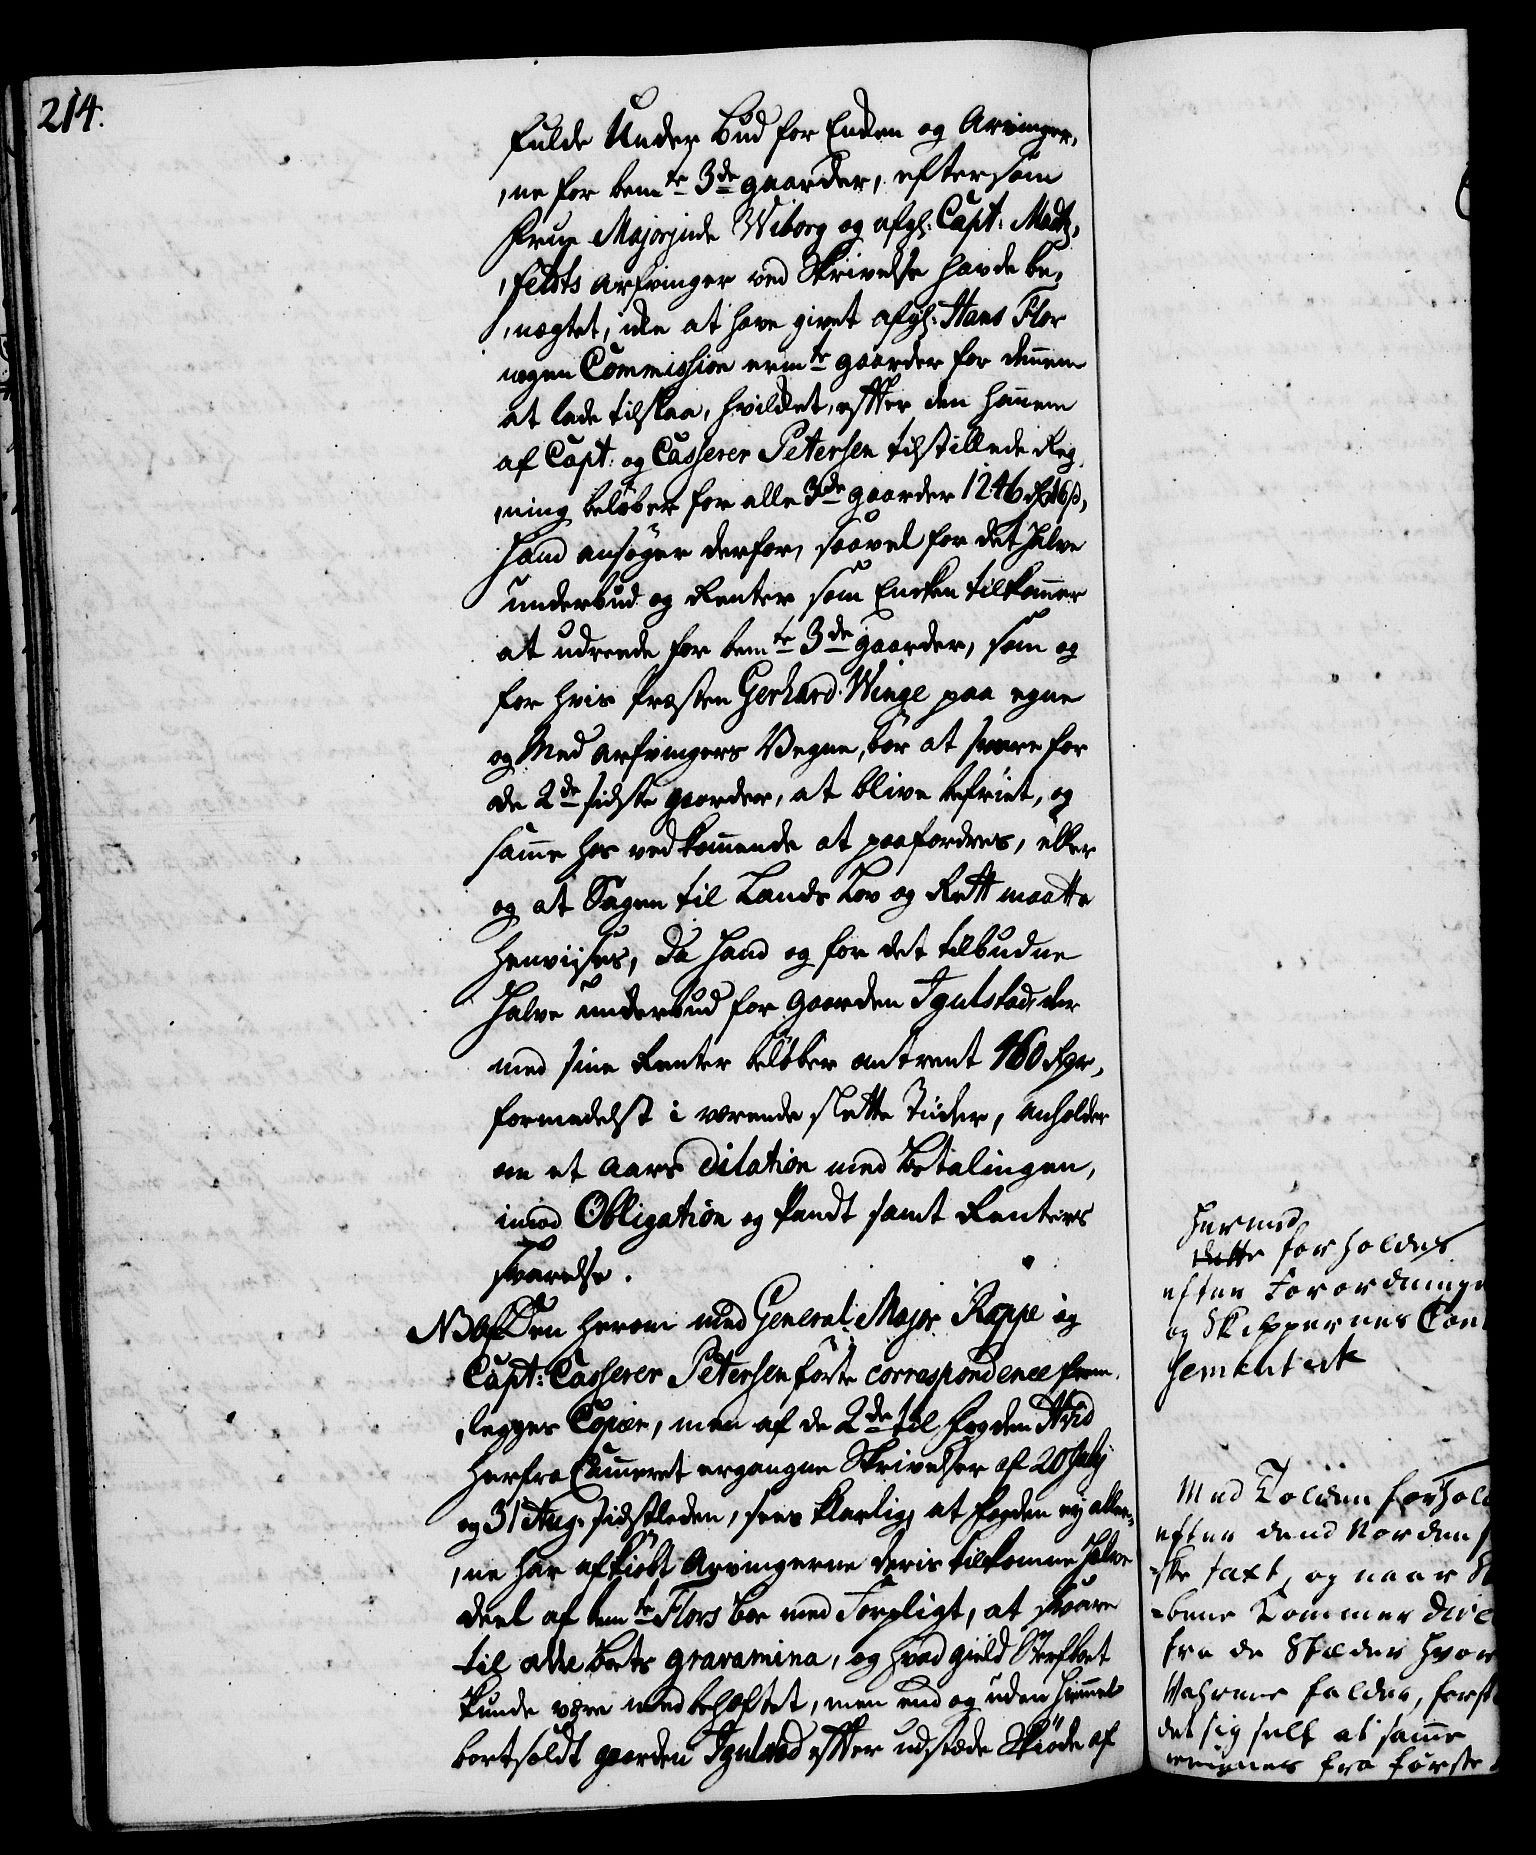 214.
fulde Under Bud for Enken og Arvinger,
,ne for bemte 3de gaarder, eftersom
Frue Majorinde Wiborg og afgl: Capt: Matz,
,feldts arfvinger ved Skrivelse havde be,
,nægtet, icke at have givet afgl: Hans Flor
nogen Commission erm:te gaarder for dennem
at lade tilslaa, hvilcket, effter den hannem
af Capt: og Casserer Petersen tilstillede Reg,
,ning beløber for alle 3de gaarder 1246 Rd 6 s,
Hand ansøger derfor, saavel for det halve
underbud og Renter som Encken tilkommer
at udreede for bemte 3de gaarder, som og
for hvis Præsten Gerhard Winge paa egne
og Med arfvingers Vegne, bør at svare for
de 2de sidste gaarder, at blive befriet, og
samme hos vedkommende at paafordres, eller
og at Sagen til Lands Lov og Rett maatte
henvises, da Hand og for det tilbudne
halve underbud for gaarden Igulstad, der
med sine Renter beløber omtrent 460 Rdr,
formedelst i værende slette Tiider, anholder
om et aars dilation med Betalingen,
imod Obligation og Pandt samt Renters
svarelse.
NB af Den herom med General Major Rappe og
Capt: Casserer Petersen førte correspondence frem,
,legges Copier, men af de 2de til fogden Hvid
herfra Cammeret ergangne Skrivelser af 20 July
og 31 Aug: sidstleden, sees klarlig, at fogden ej alle,
,ne har afkiøbt Arvingerne deris tilkomne halve
deel af bemte Flors boe med Forpligt, at svare
til alle boets gravamina, og hvad gield Sterfboet
kunde være med behæftet, men end og uden himmel
bortsoldt gaarden Igulstad effter udstæde Skiøde af
Hermed
dette forholdes
efter Forordninge
og Skippernes Con
Med Tolden forhol
efter dend Norden
ske taxt, og naar
bene kommer dire
fra de Stæder hvor
Vahrene falder, forst
det sig selv at samme
fra første